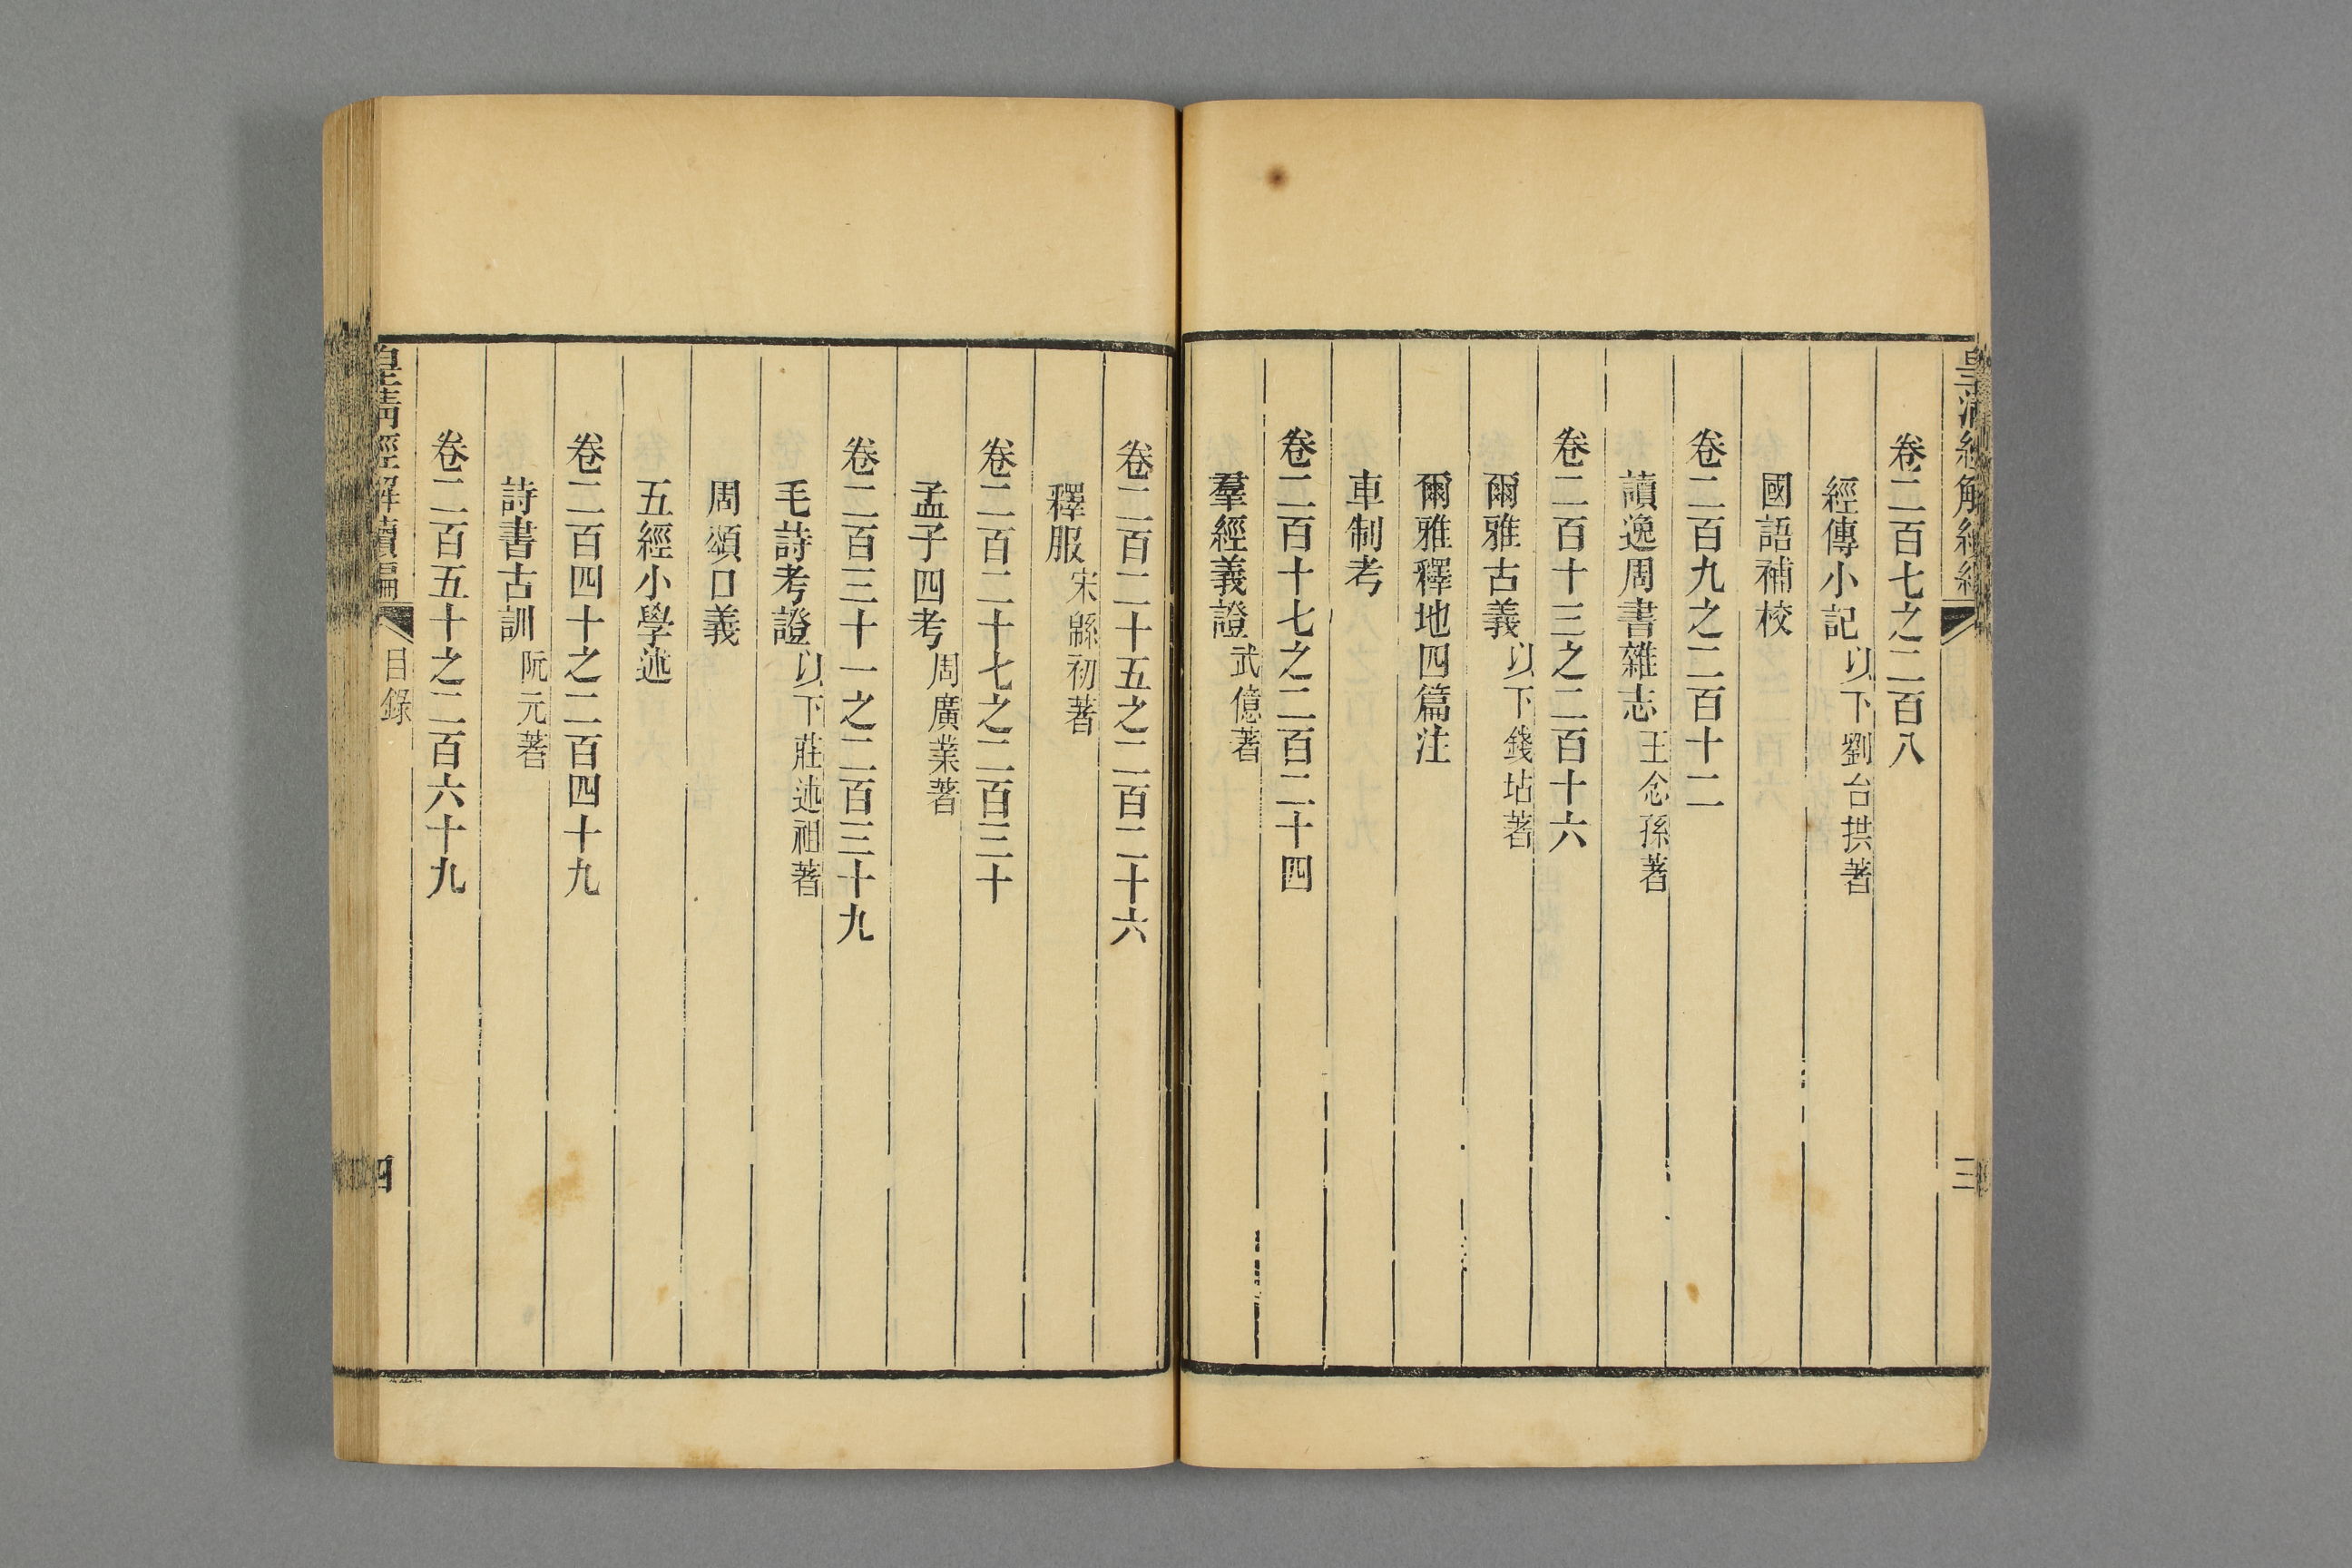 皇淸經解續編
三
卷二百七之二百八
經傳小記以下劉台拱著
國語補校
卷二百九之二百十二
讀逸周書雜志王念孫著
卷二百十三之二百十六
爾雅古義以下錢坫著
爾雅釋地四篇注
車制考
卷二百十七之二百二十四
羣經義證武億著
卷二百二十五之二百二十六
釋服宋緜初著
卷二百二十七之二百三十
孟子四考周廣業著
卷二百三十一之二百三十九
毛詩考證以下莊述祖著
周頌口義
五經小學述
卷二百四十之二百四十九
詩書古訓阮元著
卷二百五十之二百六十九
皇淸經解續編
目錄
四